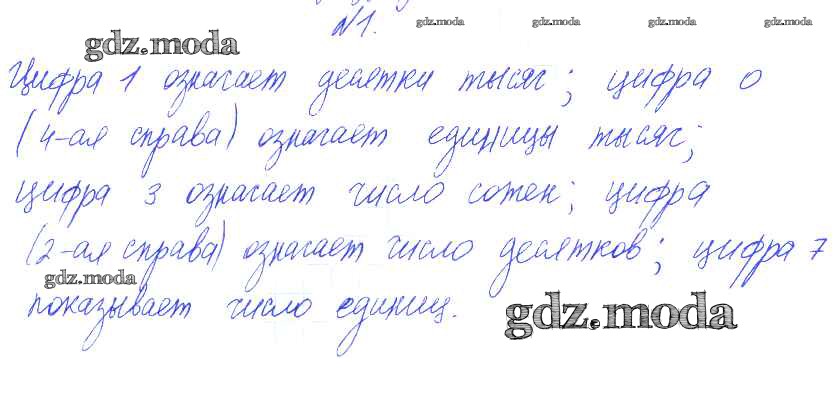 №1.
gdz.moda gdz.moda gdz.moda gdz.moda
gdz.moda
Цифра 1 означает десятки тысяч; цифра 0
(4-ая справа) означает единицы тысяч;
цифра 3 означает число сотен; цифра
(2-ая справа) означает число десятков; цифра 7
gdz.moda
показывает число единиц.
gdz.moda